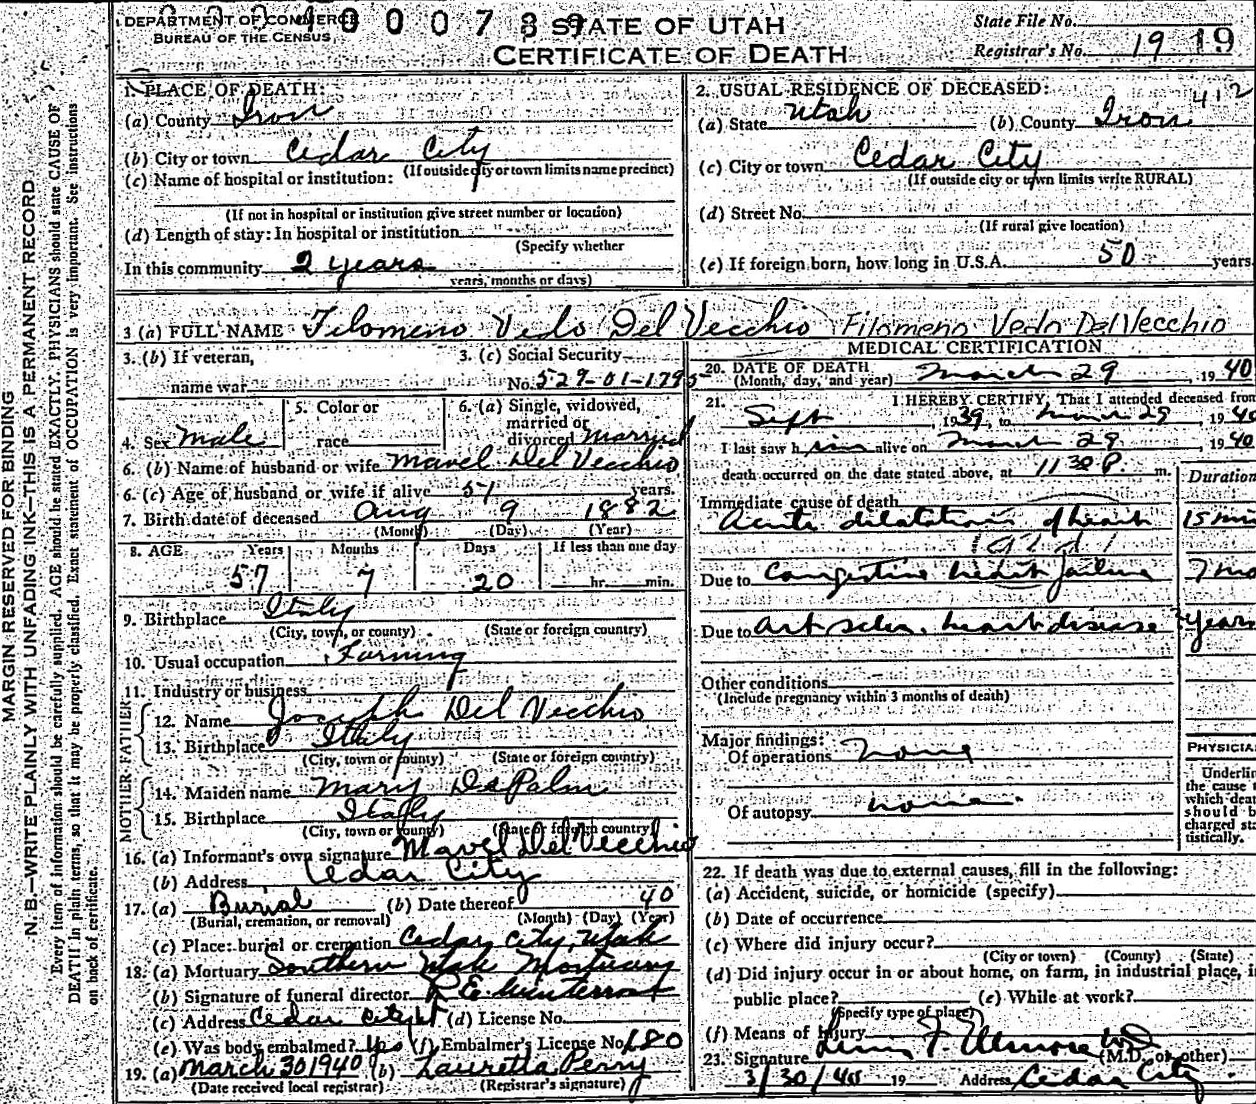 DEPARTMENT OF COMMERCE
BUREAU OF THE CENSUS
0 0 0 7 8 9
STATE OF UTAH
CERTIFICATE OF DEATH
State File No.
Registrar's No. 19 19
MARGIN RESERVED FOR BINDING
N. B.—WRITE PLAINLY WITH UNFADING INK—THIS IS A PERMANENT RECORD
Every item of information should be carefully supplied. AGE should be stated EXACTLY. PHYSICIANS should state CAUSE OF
DEATH in plain terms, so that it may be properly classified. Exact statement of OCCUPATION is very important. See instructions
on back of certificate.
1. PLACE OF DEATH:
(a) County Iron
(b) City or town Cedar City
(If outside city or town limits name precinct)
(c) Name of hospital or institution:
(If not in hospital or institution give street number or location)
(d) Length of stay: In hospital or institution
(Specify whether
In this community 2 years
years, months or days)
2. USUAL RESIDENCE OF DECEASED: 412
(a) State Utah (b) County Iron
(c) City or town Cedar City
(If outside city or town limits write RURAL)
(d) Street No.
(If rural give location)
(e) If foreign born, how long in U.S.A. 50 years.
3 (a) FULL NAME Filomeno Vedo Del Vecchio Filomeno Vedo Del Vecchio
3. (b) If veteran,
name war
3. (c) Social Security
No. 529-01-1795
4. Sex Male
5. Color or
race
6. (a) Single, widowed,
married or
divorced Married
6. (b) Name of husband or wife Mavel Del Vecchio
6. (c) Age of husband or wife if alive 51 years.
7. Birth date of deceased Aug 9 1882
(Month) (Day) (Year)
8. AGE Years Months Days If less than one day
57 7 20 hr. min.
9. Birthplace Italy
(City, town, or county) (State or foreign country)
10. Usual occupation Farming
11. Industry or business
FATHER
12. Name Joseph Del Vecchio
13. Birthplace Italy
(City, town or county) (State or foreign country)
MOTHER
14. Maiden name Mary DePalm
15. Birthplace Italy
(City, town or county) (State or foreign country)
16. (a) Informant's own signature Mavel Del Vecchio
(b) Address Cedar City
17. (a) Burial (b) Date thereof 40
(Burial, cremation, or removal) (Month) (Day) (Year)
(c) Place: burial or cremation Cedar City, Utah
18. (a) Mortuary Southern Utah Mortuary
(b) Signature of funeral director
(c) Address Cedar City (d) License No.
(e) Was body embalmed? Yes (f) Embalmer's License No. 180
19. (a) March 30 1940 (b) Lauretta Perry
(Date received local registrar) (Registrar's signature)
MEDICAL CERTIFICATION
20. DATE OF DEATH
(Month, day, and year) March 29, 1940
21. I HEREBY CERTIFY, That I attended deceased from
Sept 1939, to March 29, 1940
I last saw him alive on March 29 1940
death occurred on the date stated above, at 1130 P. m.
Duration
Immediate cause of death
Acute dilatation of heart 15 min
Due to Congestive heart failure 7 mo
Due to Art. scler. heart disease years
Other conditions
(Include pregnancy within 3 months of death)
Major findings:
Of operations none
Of autopsy none
PHYSICIA
Underli
the cause
which dea
should b
charged sta
tistically.
22. If death was due to external causes, fill in the following:
(a) Accident, suicide, or homicide (specify)
(b) Date of occurrence
(c) Where did injury occur?
(City or town) (County) (State)
(d) Did injury occur in or about home, on farm, in industrial place, i
public place? (e) While at work?
(Specify type of place)
(f) Means of Injury
23. Signature F. MD (M.D. or other)
3/30/40 19 Address Cedar City